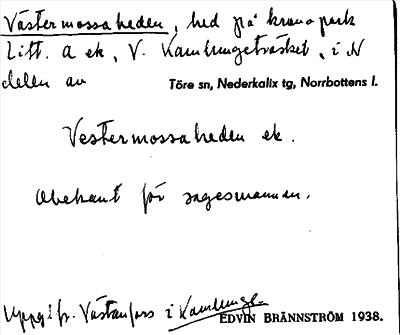 Västermossaheden, hed på kronopark
Litt. A ek, V. Kamlungeträsket, i N
delen av Töre sn, Nederkalix tg, Norrbottens l.
Vestermossaheden ek.
Obekant för sagesmannen.
Uppg. fr. Västanfors i Kamlunge
EDVIN BRÄNNSTRÖM 1938.